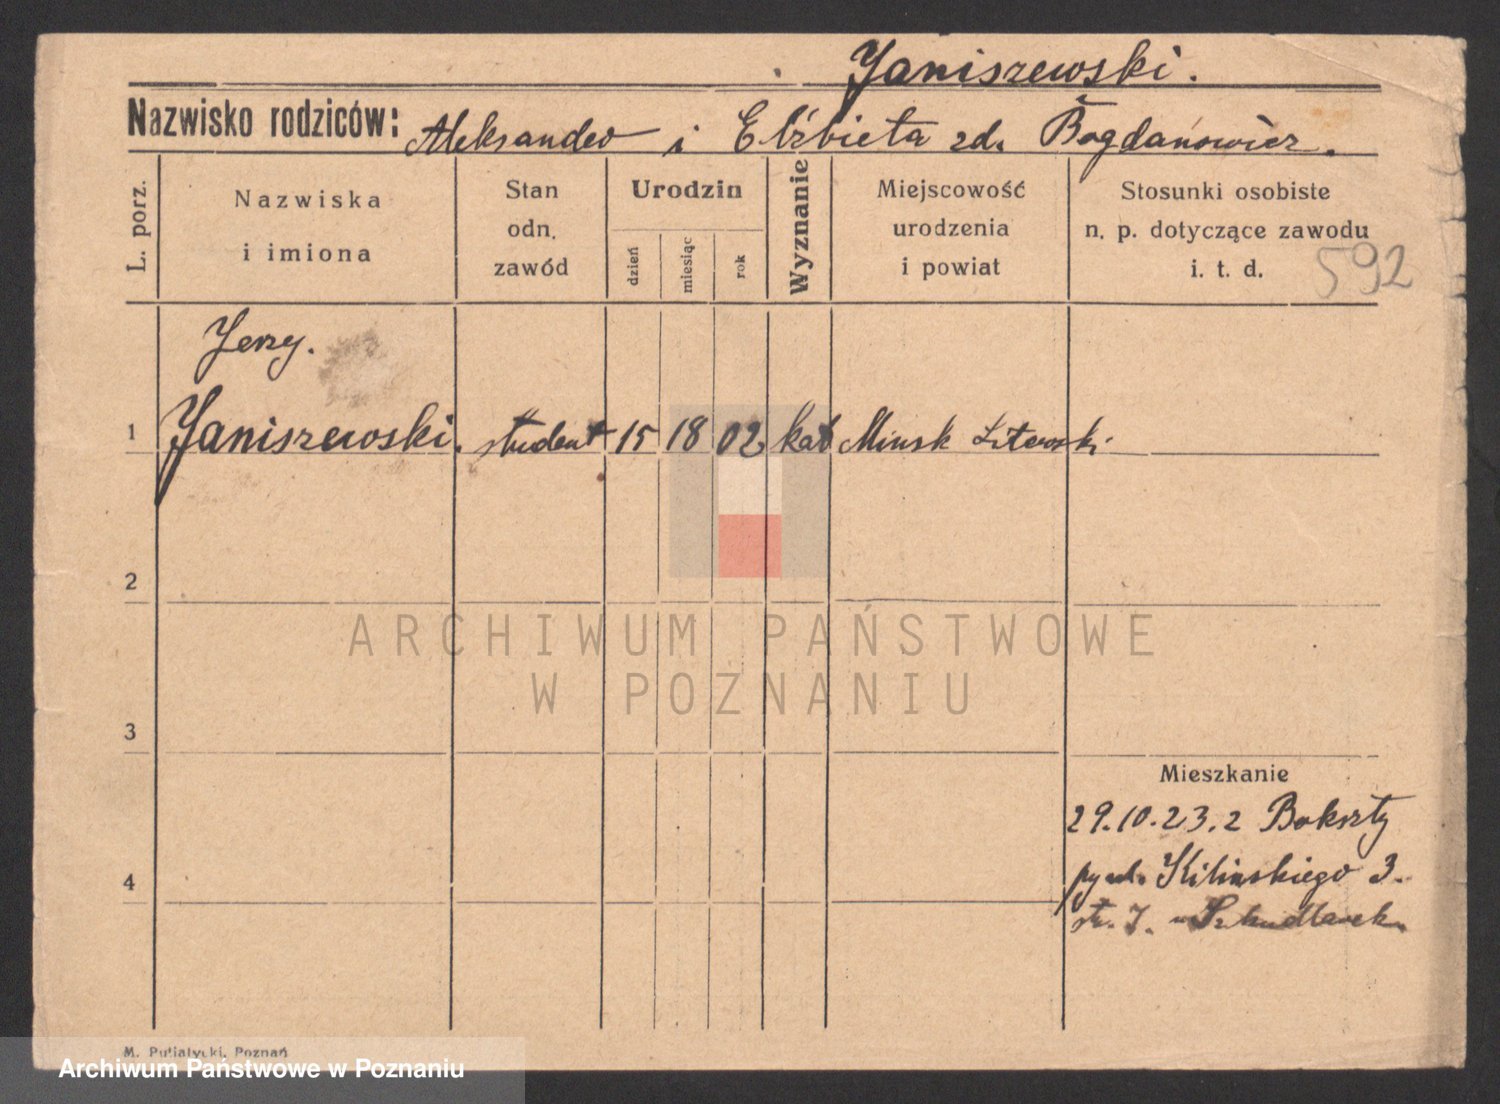 Janiszewski.
Nazwisko rodziców: Aleksander i Elżbieta zd. Bogdanowicz.
L. porz.
Nazwiska
i imiona
Stan
odn.
zawód
Urodzin
dzień
miesiąc
rok
Wyznanie
Miejscowość
urodzenia
i powiat
Stosunki osobiste
n. p. dotyczące zawodu
i. t. d.
592
Jerzy.
1 Janiszewski. student 15 18 02 kat Minsk Litewski
2
ARCHIWUM PAŃSTWOWE
W POZNANIU
3
Mieszkanie
29.10.23. z Bokszty
4
Kilinskiego 3.
Szkudlarek
M. Putiatycki, Poznań
Archiwum Państwowe w Poznaniu